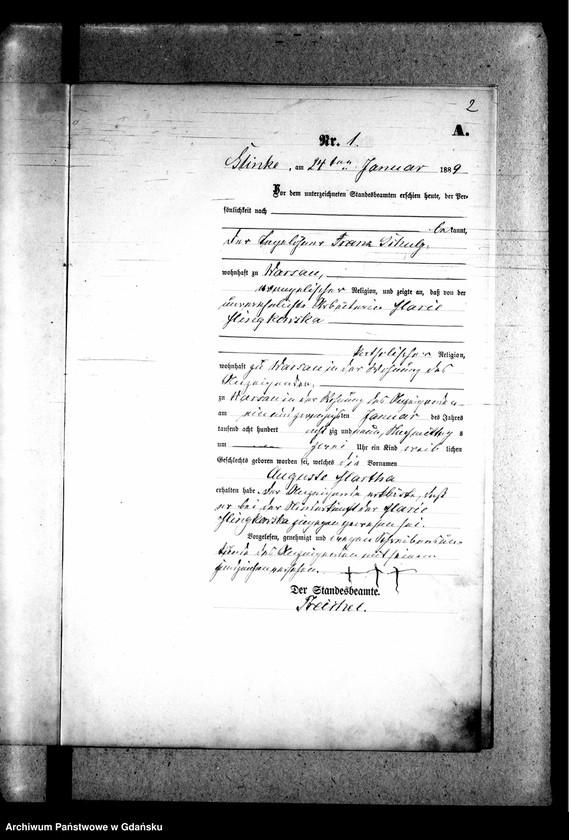 2
A.
Nr. 1.
Glinke, am 24ten Januar 1889
Vor dem unterzeichneten Standesbeamten erschien heute, der Per-
sönlichkeit nach
bekannt,
der Franz Schulz,
wohnhaft zu Warsau,
evangelischer Religion, und zeigte an, daß von der
unverehelichte Arbeiterin Marie
katholischer Religion,
wohnhaft zu Warsau in der Wohnung des
Anzeigenden,
zu Warsau in der Wohnung des Anzeigenden
am ein und zwanzigsten Januar des Jahres
tausend acht hundert acht zig und neun, Nachmittag s
um Uhr ein Kind weib lichen
Geschlechts geboren worden sei, welches die Vornamen
Auguste Martha
erhalten habe. Der Anzeigende erklärte, daß
er bei der Niederkunft der Marie
zugegen gewesen sei.
Vorgelesen, genehmigt und wegen Schreibensun-
kunde des Anzeigenden mit seinem
Handzeichen versehen. † † †
Der Standesbeamte.
Archiwum Państwowe w Gdańsku